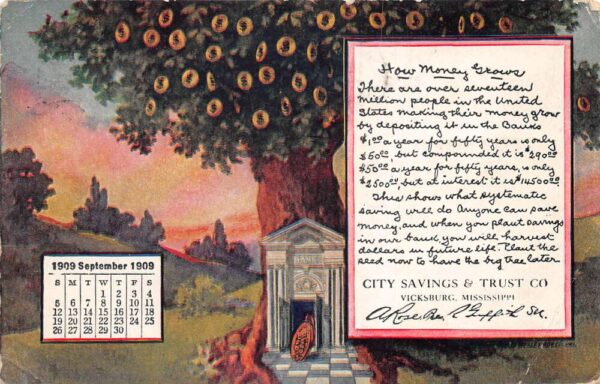 How Money Grows
There are over seventeen
million people in the United
States making their money grow
by depositing it in the Banks
$1.00 a year for fifty years is only
$50.00, but compounded it is $290.00
$50.00 a year for fifty years, is only
$2500.00 but at interest it is $14500.00
This shows what systematic
saving will do Anyone can save
money, and when you plant savings
in our bank you will harvest
dollars in future life. Plant the
seed now to have the big tree later
CITY SAVINGS & TRUST CO
VICKSBURG, MISSISSIPPI
BANK
1909 September 1909
S M T W T F S
1 2 3 4
5 6 7 8 9 10 11
12 13 14 15 16 17 18
19 20 21 22 23 24 25
26 27 28 29 30